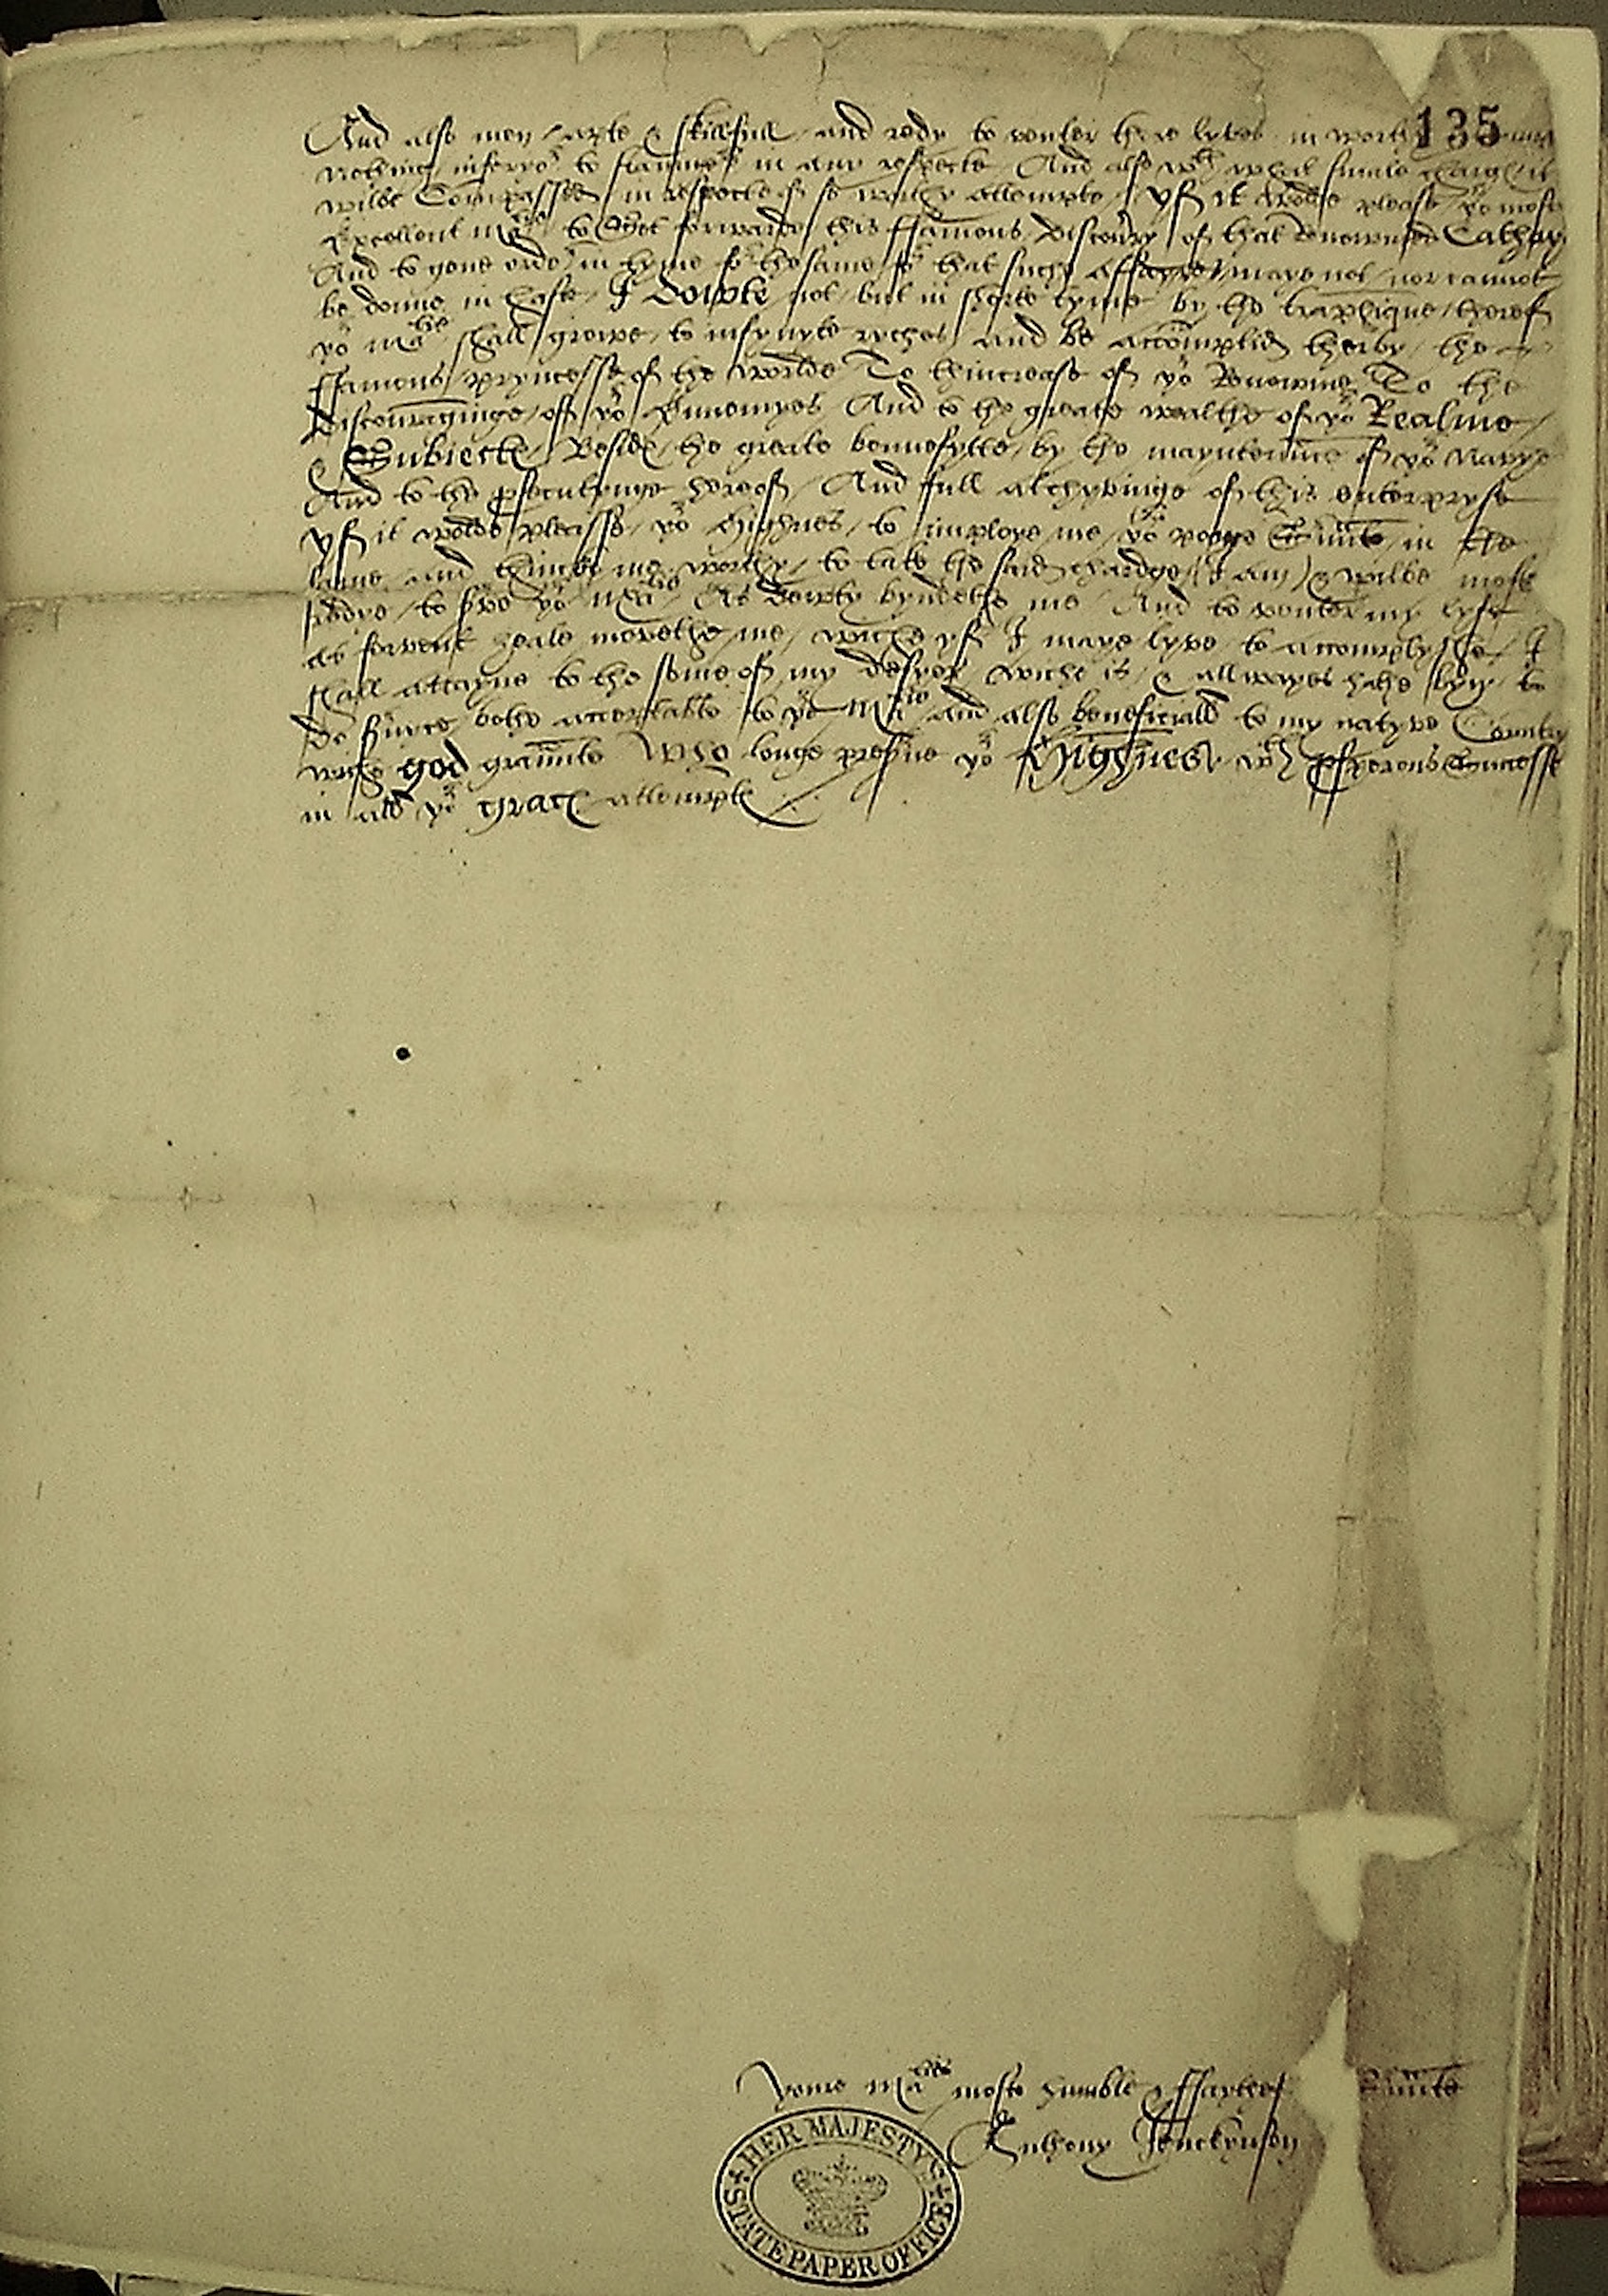 135
And also men / apte & skillfull / and redy to venter there lyves in worthy
nothing inferyor to straungers in any respecte / And also wth what smale chargs it
wilbe Compassed / in respecte of so worthy attempte / yf it wolde please yor most
Excellent matie to Set forwarde this ffamous discoury of that Renowmed Cathay
And to geue order in tyme for thesame / for that suche affayres maye not / nor cannot
be donne in haste / I dowpte not / but in shorte tyme by the traphique therof
yor matie shall growe / to infynyte ryches / and be accomptid therby / the
ffamous pryncesse of the worlde / To thincrease of yor Renowme / To the
discouraginge of yor Ennemyes And to the greate wealthe of yor Realme /
& Subiects / Besids the greate bennefytte / by the mayntenūce of yor Navye
And to the psecutynge hereof / And full atchyvinge of this enterpryse
yf it wolde pleasse yor highnes / to imploye me / yor poore Suūte / in the
same and thincke me worthy / to take the said chardge / (I am) & wilbe most
redye / to srve yor Matie As Dewty byndethe me / And to venter my lyfe
As fervent zeale movethe me / wiche yf I maye lyve to accomplyshe / I
shall attayne to the some of my desyer / wiche is / & allwayes hathe byn / to
do Suyce bothe acceptable to yor Matie And also beneficiall to my natyve Countrey
wiche god graunte Who longe presrue yor Highnes / wth psperous Successe
in all yor grac attempts
Youre Maties moste humble & ffaythef Suūte
Anthony Jenckynson
HER MAJESTY'S
STATE PAPER OFFICE